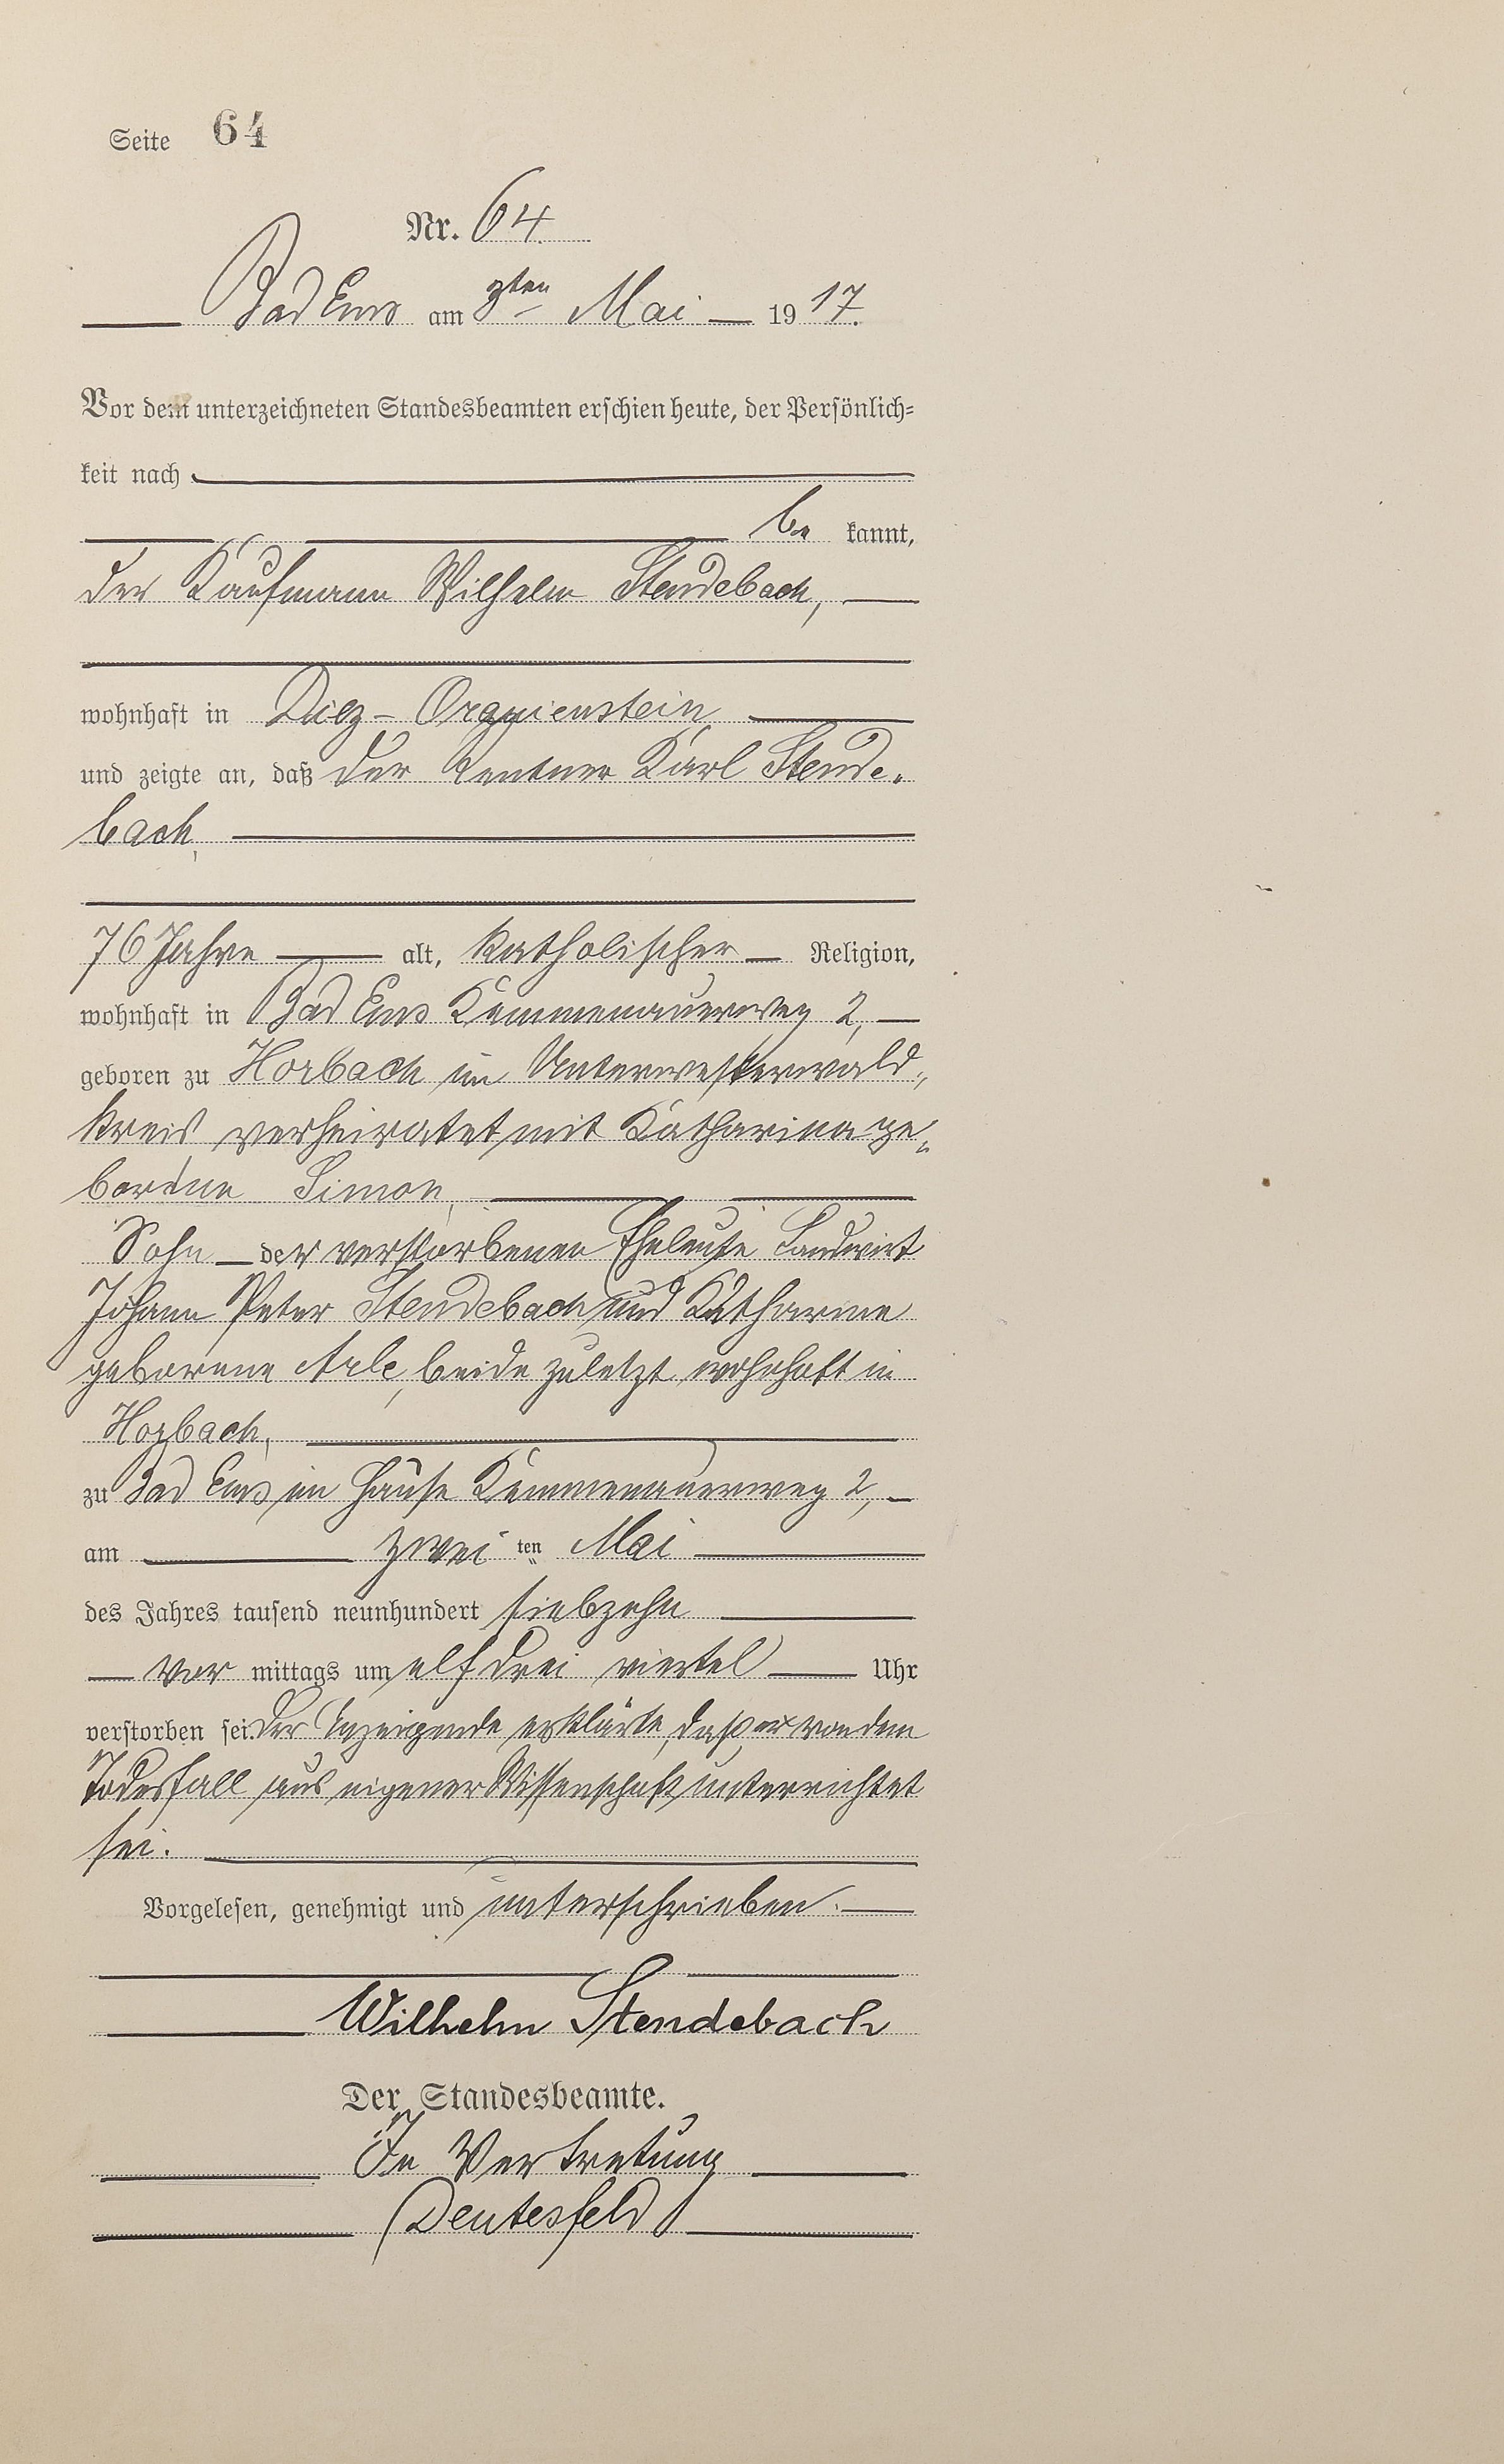 Seite 64
Nr. 64.
Bad Ems am 3ten Mai 1917.
Vor dem unterzeichneten Standesbeamten erschien heute, der Persönlich=
keit nach
be kannt,
der Kaufmann Wilhelm Stendebach,
wohnhaft in Diez - Oranienstein
und zeigte an, daß der Rentner Karl Stende-
bach,
76 Jahre alt, katholischer Religion,
wohnhaft in Bad Ems Kemmenauerweg 2,
geboren zu Horbach im Unterwesterwald-
kreis, verheiratet mit Katharina ge-
borene Simon,
Sohn der verstorbenen Eheleute Landwirt
Johann Peter Stendebach und Katharine
geborene beide zuletzt wohnhaft in
Horbach,
zu Bad Ems im Hause Kemmenauerweg 2,
am zwei ten Mai
des Jahres tausend neunhundert siebzehn
vor mittags um elf drei viertel Uhr
verstorben sei. Der Anzeigende erklärte, daß er von dem
Todesfall aus eigener Wissenschaft unterrichtet
sei.
Vorgelesen, genehmigt und unterschrieben.
Wilhelm Stendebach
Der Standesbeamte.
In Vertretung
Deutesfeld